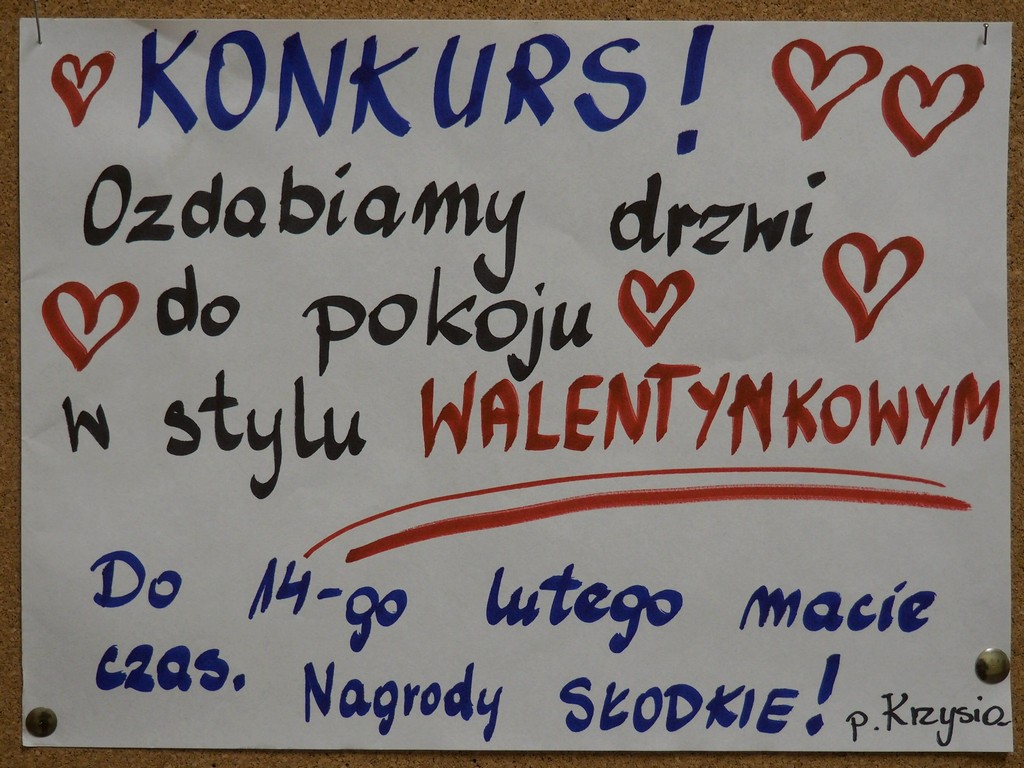 KONKURS!
Ozdabiamy drzwi
do pokoju
w stylu WALENTYNKOWYM
Do 14-go lutego macie
czas. Nagrody SŁODKIE!
p. Krzysia